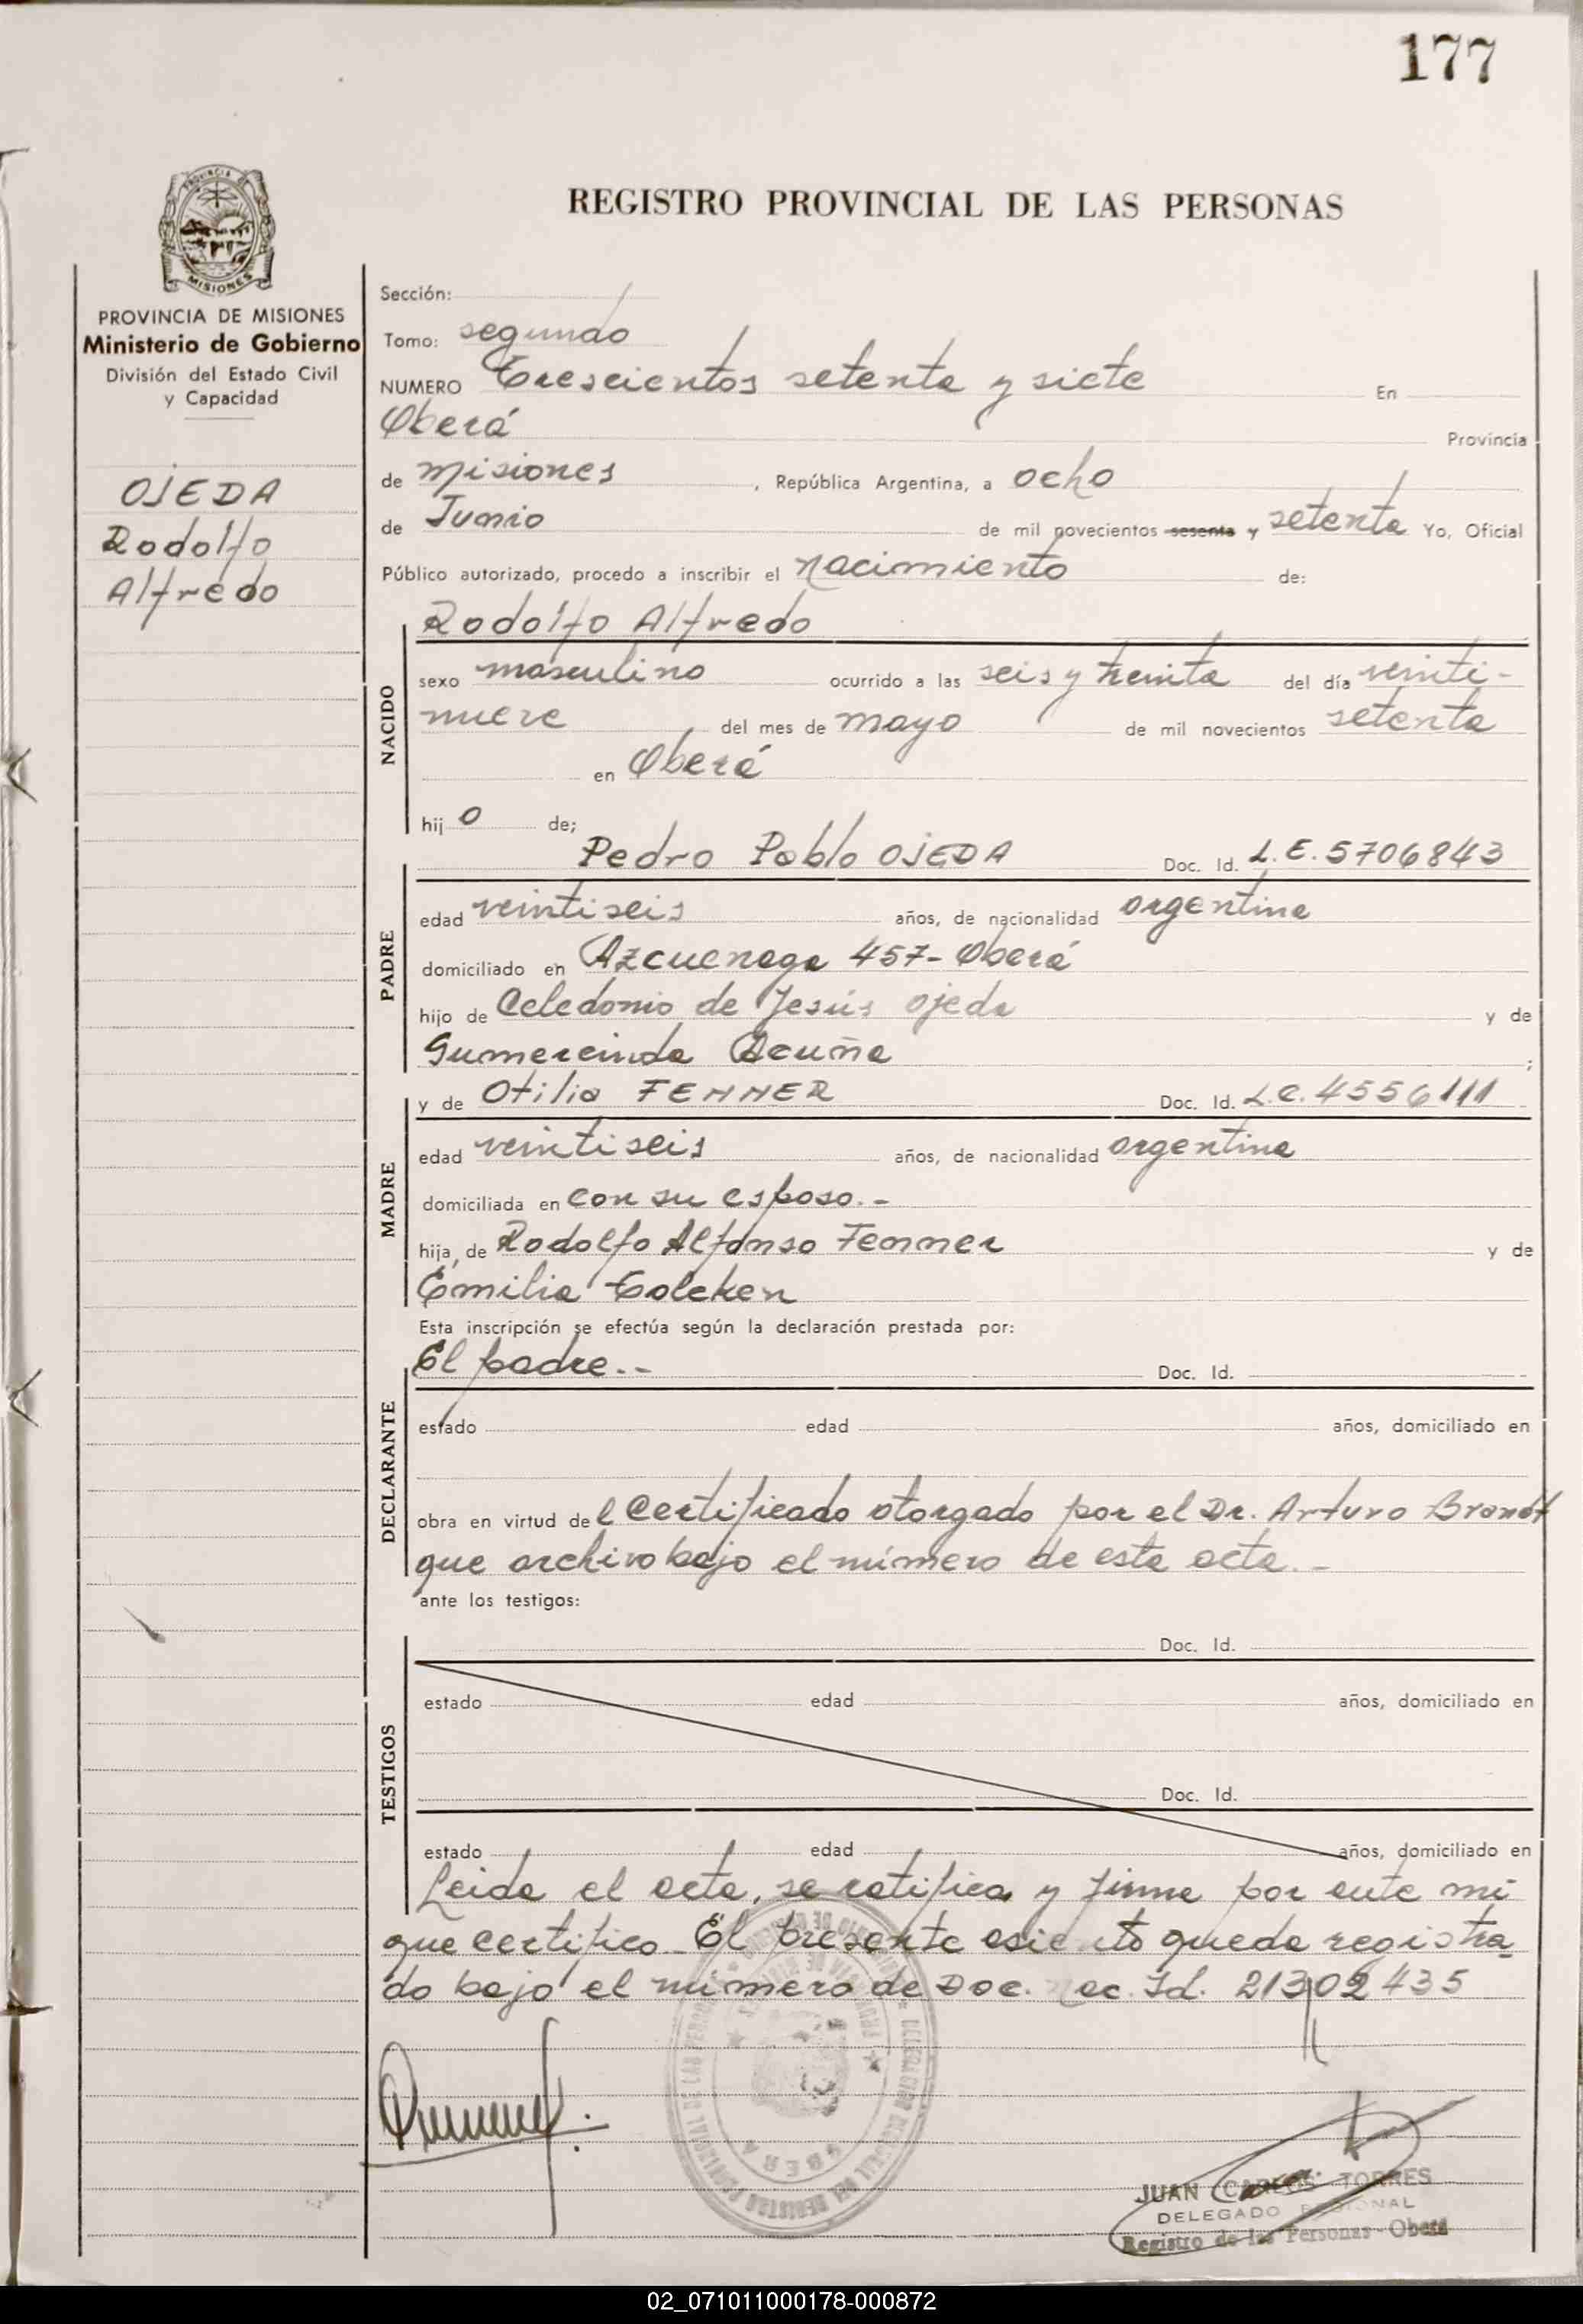 177
PROVINCIA DE
MISIONES
REGISTRO PROVINCIAL DE LAS PERSONAS
PROVINCIA DE MISIONES
Ministerio de Gobierno
División del Estado Civil
y Capacidad
OJEDA
Rodolfo
Alfredo
Sección:
Tomo: segundo
NUMERO Trescientos setenta y siete En
Oberá Provincia
de Misiones, República Argentina, a ocho
de Junio de mil novecientos sesenta y setenta Yo, Oficial
Público autorizado, procedo a inscribir el nacimiento de:
Rodolfo Alfredo
NACIDO
sexo masculino ocurrido a las seis y treinta del día veinti-
nueve del mes de mayo de mil novecientos setenta
en Oberá
hij o de;
Pedro Pablo OJEDA Doc. Id. L.E. 5706843
PADRE
edad veintiseis años, de nacionalidad argentina
domiciliado en Azcuenaga 457- Oberá
hijo de Celedonio de Jesús Ojeda y de
Gumercinda Acuña ;
y de Otilia FENNER Doc. Id. L.C. 4556111
MADRE
edad veintiseis años, de nacionalidad argentina
domiciliada en con su esposo.-
hija de Rodolfo Alfonso Fenner y de
Emilia
Esta inscripción se efectúa según la declaración prestada por:
El padre.-- Doc. Id.
DECLARANTE
estado edad años, domiciliado en
obra en virtud de l Certificado otorgado por el Dr. Arturo Brandt
que archivo bajo el número de esta acta.-
ante los testigos:
Doc. Id.
TESTIGOS
estado edad años, domiciliado en
Doc. Id.
estado edad años, domiciliado en
Leida el acta, se ratifica y firma por ante mi
que certifico. El presente asiento queda registra
do bajo el número de Doc. Nac. Id. 21302435
OBERA
JUAN CARLOS TORRES
DELEGADO REGIONAL
Registro de las Personas - Oberá
02_071011000178-000872